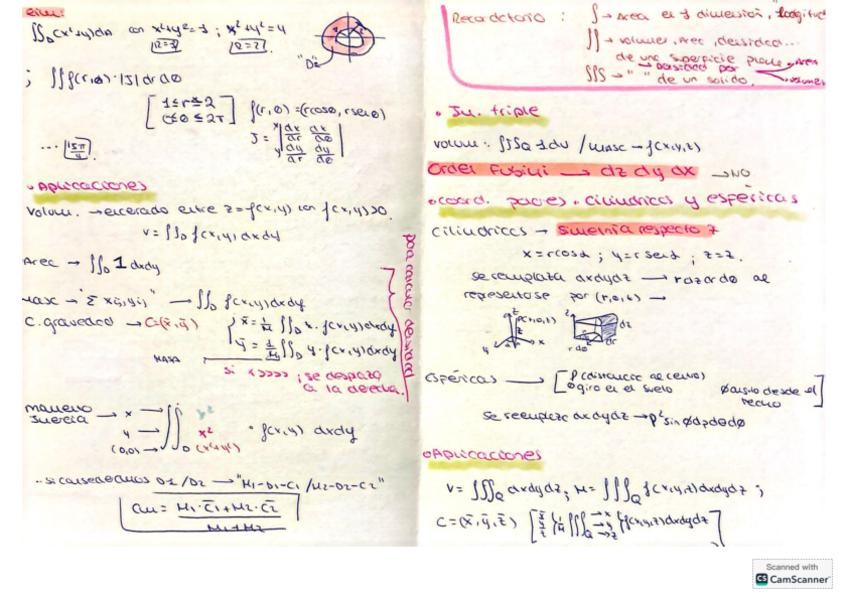 ∬_D (x²+y²)dA con x²+y²=1 ; x²+y²=4
R=1 R=2
"D"
; ∬ f(r,θ)·|J| dr dθ
[1≤r≤2
0≤θ≤2π] f(r,θ)=(rcosθ, rsenθ)
J = |dx/dr dx/dθ
dy/dr dy/dθ|
... 15π/
• Aplicaciones
Volum. → encerrado entre z=f(x,y) con f(x,y)>0.
V=∬_D f(x,y)dxdy
Area → ∬_D 1 dxdy
Masc → "Σ → ∬_D f(x,y)dxdy
C. gravedad → C=(x̄,ȳ) { x̄ = 1/M ∬_D x·f(x,y)dxdy
ȳ = 1/M ∬_D y·f(x,y)dxdy
MASA
si ; se desplaza
a la derecha.
para calcular densidad
momento
inercia → x → ∬_D y²
y → x² · f(x,y) dxdy
(0,0) → (x²+y²)
D1/D2 → "M1-D1-C1 / M2-D2-C2"
CM = M1·C̄1+M2·C̄2
M1+M2
Recordatorio : ∫→ Area en 1 dimensión, longitud
∬→ volumen, Area, densidad...
de una superficie plana
∭→ " " de un solido.
• In. triple
Volum: ∭_Q 1dv / masc → f(x,y,z)
Orden Fubini → dz dy dx → NO
• coord. polares. cilindricas y esféricas
Cilindricos → simetria respecto z
x=rcosα ; y=rsenα ; z=z.
se remplaza dxdydz → rdzdrdθ al
representarse por (r,θ,z) →
z P(r,θ,z)
z
y x
dz
dr
rdθ
Esféricas → [ρ (distancia al centro)
θ giro en el suelo ϕ angulo desde el
techo]
se reemplaza dxdydz → ρ²sinϕdρdθdϕ
• Aplicaciones
V=∭_Q dxdydz; M=∭_Q f(x,y,z)dxdydz ;
C=(x̄,ȳ,z̄) [x̄ ȳ z̄ } 1/M ∭_Q →x →y →z } f(x,y,z)dxdydz]
Scanned with
CS CamScanner